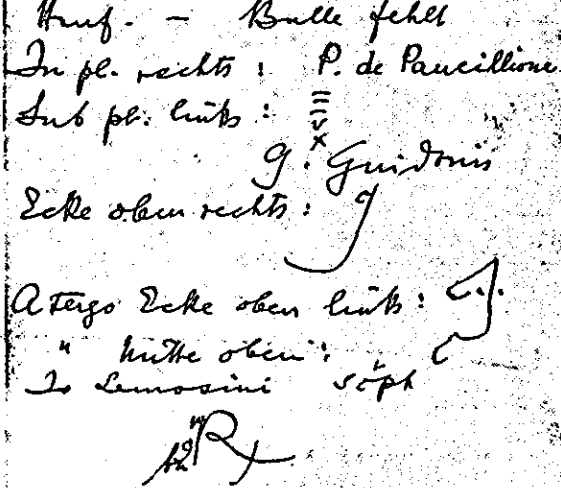 Hanf. - Bulle fehlt
In pl. rechts: P. de Paucillione
Sub pl. links:
G. Guidonis
Ecke oben rechts:
A tergo Ecke oben links:
" Mitte oben:
Jo Lemosini
R